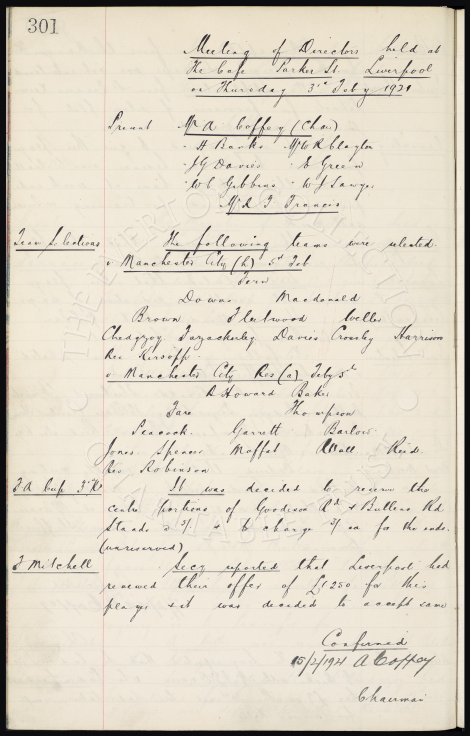 301
Meeting of Directors held at
the Cafe Parker St. Liverpool
on Thursday 3rd Feby 1921
Present Mr A Coffey (Chair)
" H Banks Mr C R Clayton
" J G Davies " E Green
" W C Gibbins " W J Sawyer
Mr D F Francis
Team Selections The following teams were selected.
v Manchester City (h) 5th Feb
Fern
Downs Macdonald
Brown Fleetwood Weller
Chedgzoy Fazackerley Davies Crossley Harrison
Res Kirsopp.
v Manchester City Res (a) Feby 5th
R Howard Baker
Fare Thompson
Peacock. Garrett Barlow.
Jones Spencer Moffat Wall Reid.
Res Robinson
F A Cup 3rd Rd It was decided to reserve the
centre portions of Goodison Rd & Bullens Rd
Stands @ 5/ & to charge 3/ ea for the ends.
(unreserved)
F Mitchell Secy reported that Liverpool had
renewed their offer of £1250 for this
player & it was decided to accept same
Confirmed
15/2/1921 A Coffey
Chairman
THE EVERTON COLLECTION